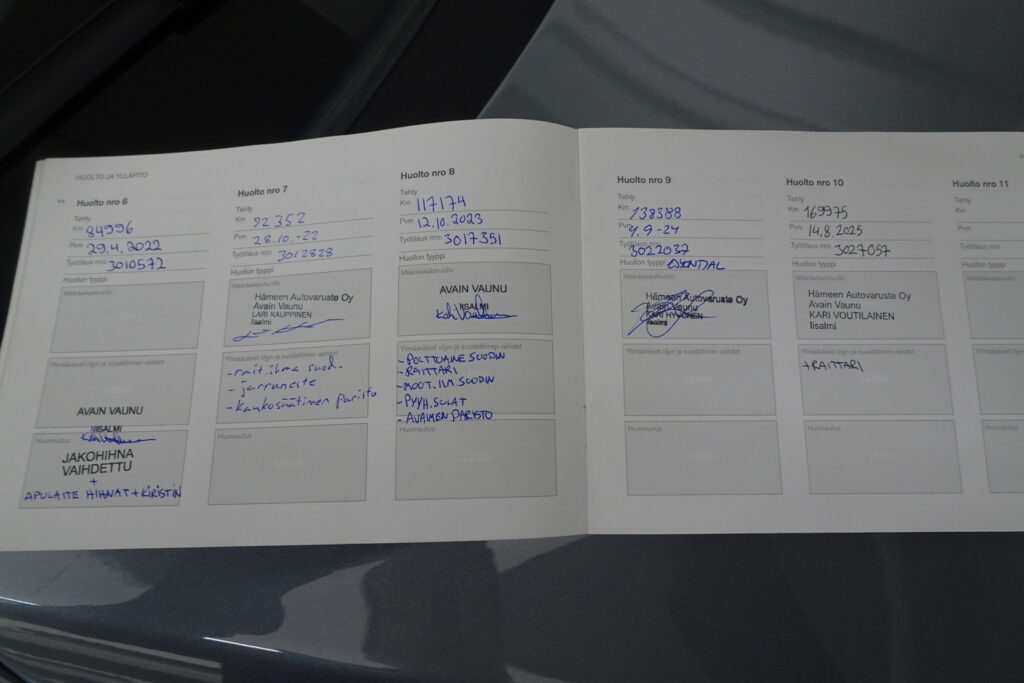 HUOLTO JA YLLÄPITO
Huolto nro 6
Tehty
Km 84996
Pvm 29.4.2022
Työtilaus nro: 3010572
Huollon tyyppi
Määräaikaishuolto
LEIMA
Ylimääräiset öljyn ja suodattimen vaihdot
LEIMA
AVAIN VAUNU
IISALMI
Huomautus
JAKOHIHNA
VAIHDETTU
+
APULAITE HIHNAT + KIRISTIN
Huolto nro 7
Tehty
Km 92352
Pvm 28.10.-22
Työtilaus nro: 3012828
Huollon tyyppi
Määräaikaishuolto
Hämeen Autovaruste Oy
Avain Vaunu
LARI KAUPPINEN
Iisalmi
Ylimääräiset öljyn ja suodattimen vaihdot
- rait.ilma suod.
- jarruneste
- kaukosäätimen paristo
Huomautus
LEIMA
Huolto nro 8
Tehty
Km 117174
Pvm 12.10.2023
Työtilaus nro: 3017351
Huollon tyyppi
Määräaikaishuolto
AVAIN VAUNU
IISALMI
Ylimääräiset öljyn ja suodattimen vaihdot
- POLTTOAINE SUODIN
- RAITTARI
- MOOT.ILM.SUODIN
- PYYH.SULAT
- AVAIMEN PARISTO
Huomautus
LEIMA
Huolto nro 9
Tehty
Km 138388
Pvm 4.9-24
Työtilaus nro: 3022037
Huollon tyyppi ESSENTIAL
Määräaikaishuolto
Hämeen Autovaruste Oy
Avain Vaunu
KARI HYVÖNEN
Iisalmi
Ylimääräiset öljyn ja suodattimen vaihdot
LEIMA
Huomautus
LEIMA
Huolto nro 10
Tehty
Km 169975
Pvm 14.8.2025
Työtilaus nro: 3027057
Huollon tyyppi
Määräaikaishuolto
Hämeen Autovaruste Oy
Avain Vaunu
KARI VOUTILAINEN
Iisalmi
Ylimääräiset öljyn ja suodattimen vaihdot
+ RAITTARI
LEIMA
Huomautus
LEIMA
Huolto nro 11
Tehty
Km
Pvm
Työtilaus nro:
Huollon tyyppi
Määräaikaishuolto
Ylimääräiset
Huomautus